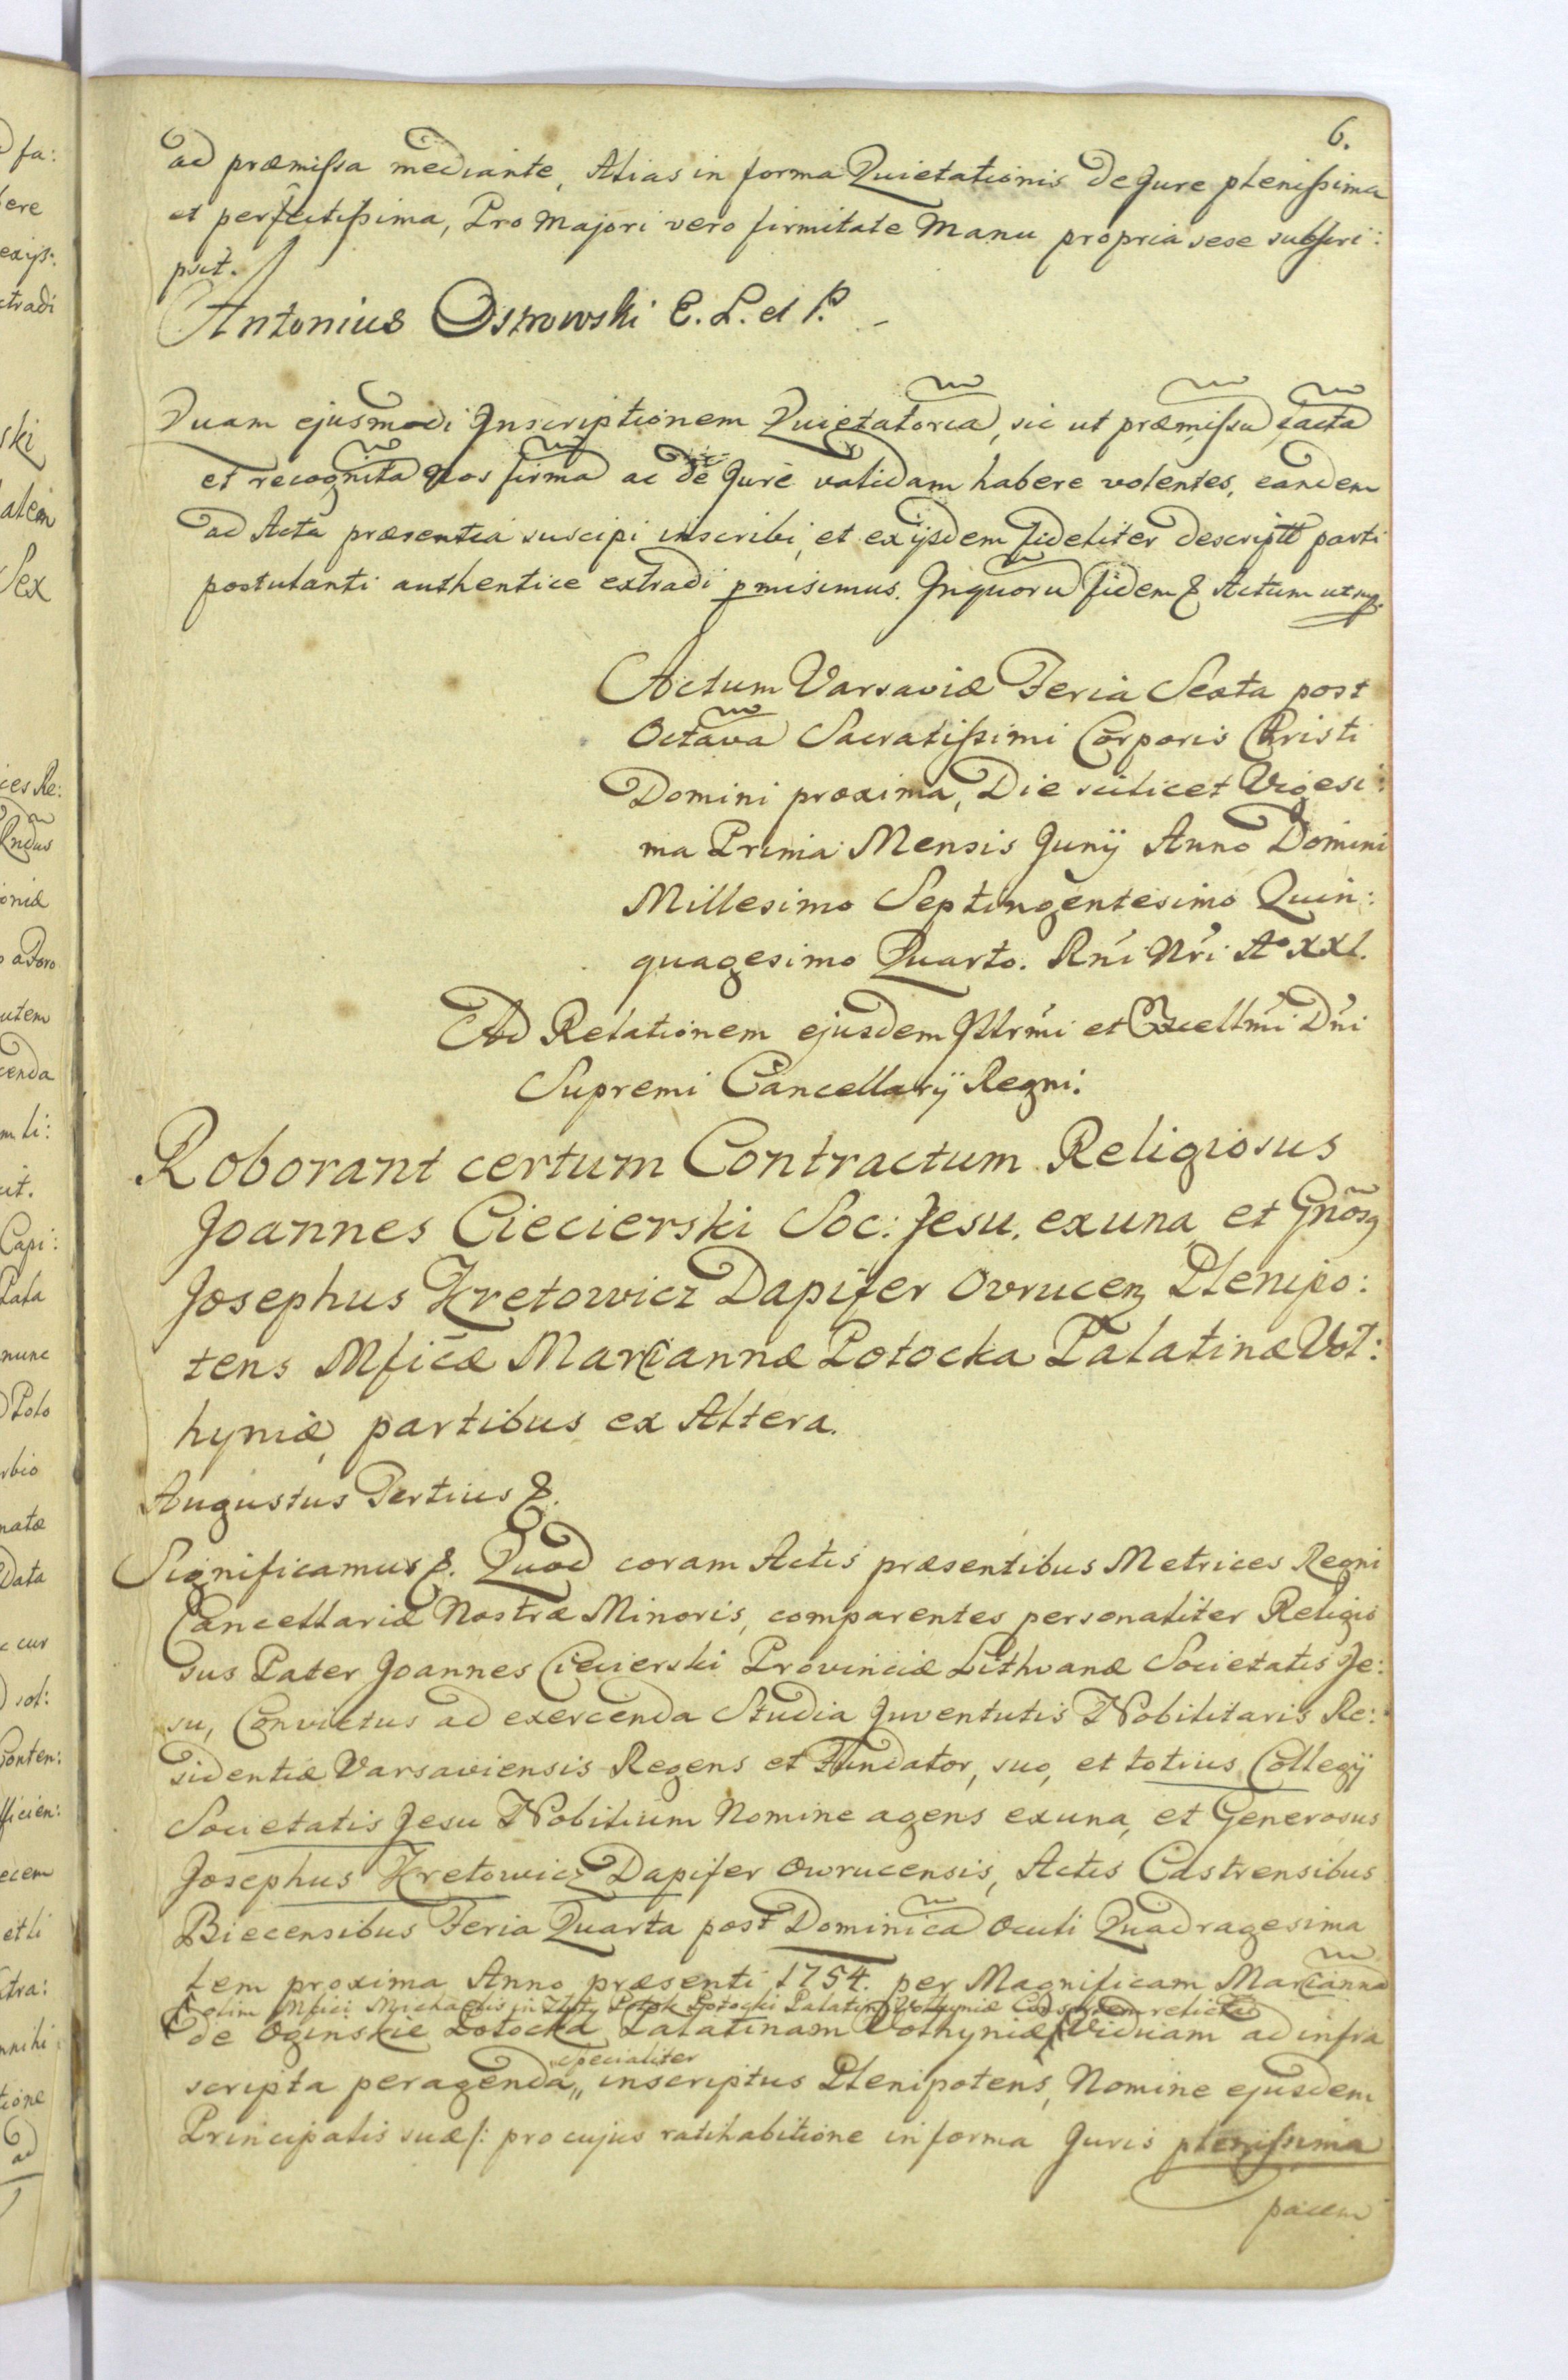 6.
ad præmissa mediante, Alias in forma Quietationis de Jure plenissima
et perfectissima, Pro Majori vero firmitate Manu propria sese subscri:
psit.
Antonius Ostrowski E. L. et P.
Quam ejusmodi Inscriptionem Quietatoria, sic ut præmissu facta
et recognita Nos firma ac de Jure validam habere volentes, eandem
ad Acta præsentia suscipi inscribi, et ex ijsdem fideliter descriptt parti
postulanti authentice extradi pmisimus. In quoru fidem & Actum ut sup.
Actum Varsaviæ Feria Sexta post
Octava Sacratissimi Corporis Christi
Domini proxima, Die scilicet Vigesi:
ma Prima Mensis Junÿ Anno Domini
Millesimo Septingentesimo Quin:
quagesimo Quarto. Rni Nri A° XXI.
Ad Relationem ejusdem Illrmi et Excellmi Dni
Supremi Cancellarÿ Regni:
Roborant certum Contractum Religiosus
Joannes Ciecierski Soc: Jesu, ex una, et Gnosg
Josephus Kretowicz Dapifer Ovrucen Plenipo:
tens Mficæ Mariannæ Potocka Palatinæ Vol:
hyniæ, partibus ex Altera.
Augustus Tertius &.
Significamus &. Quod coram Actis præsentibus Metrices Regni
Cancellariæ Nostræ Minoris, comparentes personaliter Religio
sus Pater Joannes Ciecierski Provinciæ Lithvanæ Societatis Je:
su, Convictus ad exercenda Studia Juventutis Nobilitaris Re:
sidentiæ Varsaviensis Regens et Fundator, suo, et totius Collegÿ
Societatis Jesu Nobilium Nomine agens ex una, et Generosus
Josephus Kretowicz Dapifer Owrucensis, Actis Castrensibus
Biecensibus Feria Quarta post Dominica Oculi Quadragesima
lem proxima Anno præsenti 1754. per Magnificam Marianna
olim Mfici Michaelis in Złoty Potok Potocki Palatini Volhyniæ Consortem relicta
de Oginskie Potocka Palatinam Volhyniæ Viduam ad infra
specialiter
scripta peragenda,, inscriptus Plenipotens, Nomine ejusdem
Principalis suæ /: pro cujus ratihabitione in forma Juris plenissima
pacem